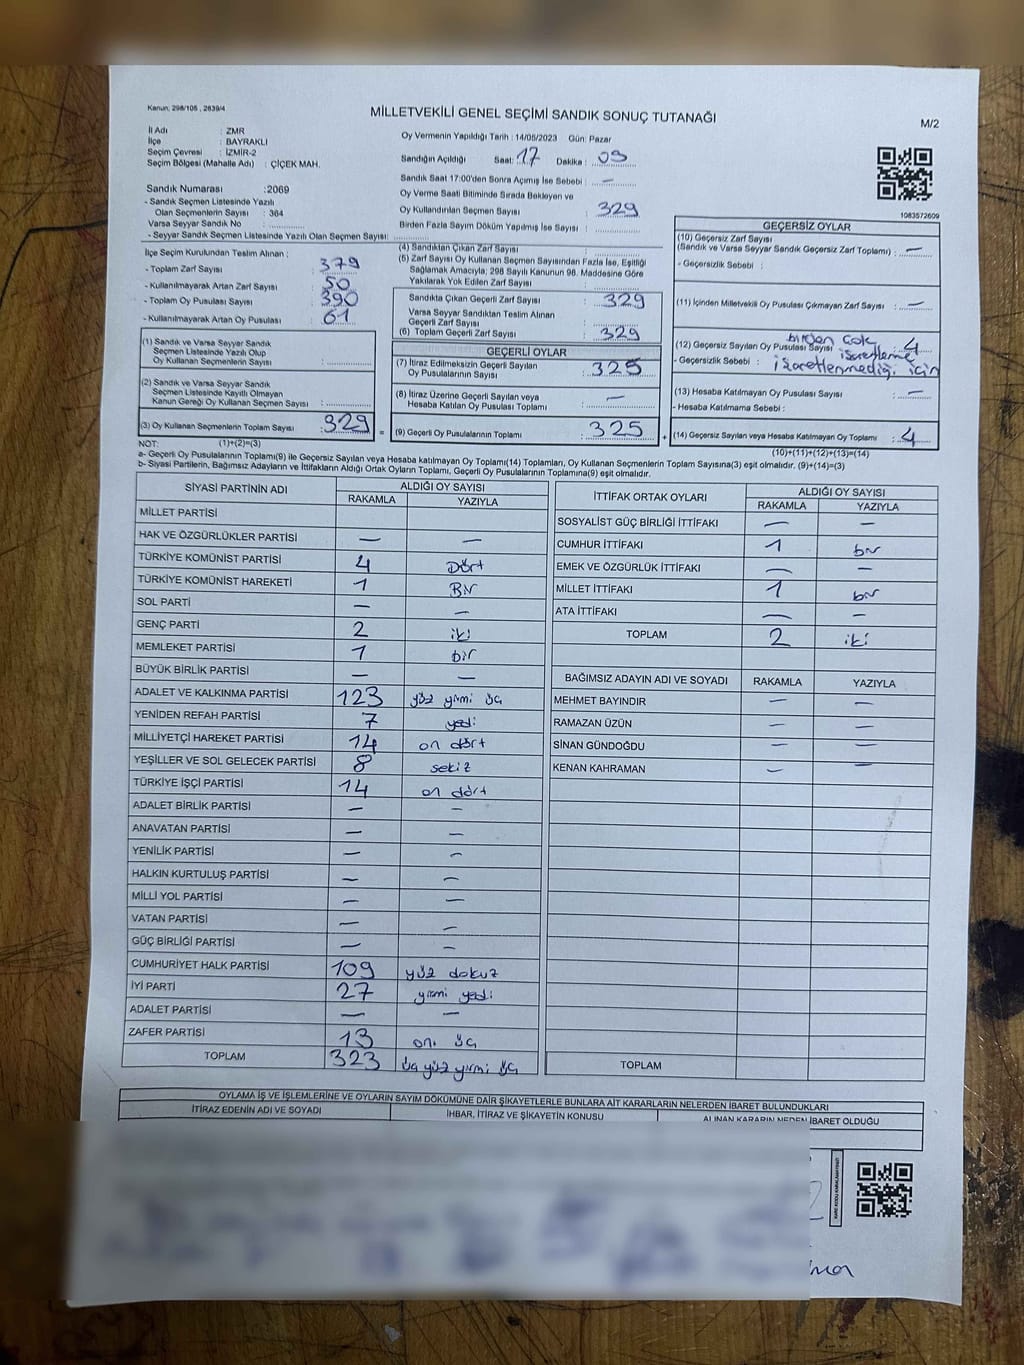 Kanun; 298/105 , 2839/4
MİLLETVEKİLİ GENEL SEÇİMİ SANDIK SONUÇ TUTANAĞI
M/2
İl Adı : ZMR
İlçe : BAYRAKLI
Seçim Çevresi : İZMİR-2
Seçim Bölgesi (Mahalle Adı) : ÇİÇEK MAH.
Oy Vermenin Yapıldığı Tarih : 14/05/2023 Gün: Pazar
Sandığın Açıldığı Saat: 17 Dakika : 09
Sandık Saat 17:00'den Sonra Açımış İse Sebebi : —
Oy Verme Saati Bitiminde Sırada Bekleyen ve
Oy Kullandırılan Seçmen Sayısı : 329
Birden Fazla Sayım Döküm Yapılmış İse Sayısı :
1083572609
Sandık Numarası :2069
- Sandık Seçmen Listesinde Yazılı
Olan Seçmenlerin Sayısı : 364
Varsa Seyyar Sandık No :
- Seyyar Sandık Seçmen Listesinde Yazılı Olan Seçmen Sayısı:
İlçe Seçim Kurulundan Teslim Alınan :
- Toplam Zarf Sayısı : 379
- Kullanılmayarak Artan Zarf Sayısı : 50
- Toplam Oy Pusulası Sayısı : 390
- Kullanılmayarak Artan Oy Pusulası : 61
(1) Sandık ve Varsa Seyyar Sandık
Seçmen Listesinde Yazılı Olup
Oy Kullanan Seçmenlerin Sayısı :
(2) Sandık ve Varsa Seyyar Sandık
Seçmen Listesinde Kayıtlı Olmayan
Kanun Gereği Oy Kullanan Seçmen Sayısı :
(3) Oy Kullanan Seçmenlerin Toplam Sayısı : 329 =
(4) Sandıktan Çıkan Zarf Sayısı :
(5) Zarf Sayısı Oy Kullanan Seçmen Sayısından Fazla İse, Eşitliği
Sağlamak Amacıyla; 298 Sayılı Kanunun 98. Maddesine Göre
Yakılarak Yok Edilen Zarf Sayısı :
Sandıkta Çıkan Geçerli Zarf Sayısı : 329
Varsa Seyyar Sandıktan Teslim Alınan
Geçerli Zarf Sayısı :
(6) Toplam Geçerli Zarf Sayısı : 329
GEÇERLİ OYLAR
(7) İtiraz Edilmeksizin Geçerli Sayılan
Oy Pusulalarının Sayısı : 325
(8) İtiraz Üzerine Geçerli Sayılan veya
Hesaba Katılan Oy Pusulası Toplamı : —
(9) Geçerli Oy Pusulalarının Toplamı : 325 +
GEÇERSİZ OYLAR
(10) Geçersiz Zarf Sayısı
(Sandık ve Varsa Seyyar Sandık Geçersiz Zarf Toplamı) : —
- Geçersizlik Sebebi :
(11) İçinden Milletvekili Oy Pusulası Çıkmayan Zarf Sayısı : —
birden çok
(12) Geçersiz Sayılan Oy Pusulası Sayısı : 4
işaretleme
- Geçersizlik Sebebi : işaretlenmediği için
(13) Hesaba Katılmayan Oy Pusulası Sayısı : —
- Hesaba Katılmama Sebebi :
(14) Geçersiz Sayılan veya Hesaba Katılmayan Oy Toplamı : 4
(10)+(11)+(12)+(13)=(14)
NOT: (1)+(2)=(3)
a- Geçerli Oy Pusulalarının Toplamı(9) ile Geçersiz Sayılan veya Hesaba katılmayan Oy Toplamı(14) Toplamları, Oy Kullanan Seçmenlerin Toplam Sayısına(3) eşit olmalıdır. (9)+(14)=(3)
b- Siyasi Partilerin, Bağımsız Adayların ve İttifakların Aldığı Ortak Oyların Toplamı, Geçerli Oy Pusulalarının Toplamına(9) eşit olmalıdır.
SİYASİ PARTİNİN ADI ALDIĞI OY SAYISI
RAKAMLA YAZIYLA
MİLLET PARTİSİ
HAK VE ÖZGÜRLÜKLER PARTİSİ — —
TÜRKİYE KOMÜNİST PARTİSİ 4 Dört
TÜRKİYE KOMÜNİST HAREKETİ 1 Bir
SOL PARTİ — —
GENÇ PARTİ 2 iki
MEMLEKET PARTİSİ 1 bir
BÜYÜK BİRLİK PARTİSİ — —
ADALET VE KALKINMA PARTİSİ 123 yüz yirmi üç
YENİDEN REFAH PARTİSİ 7 yedi
MİLLİYETÇİ HAREKET PARTİSİ 14 on dört
YEŞİLLER VE SOL GELECEK PARTİSİ 8 sekiz
TÜRKİYE İŞÇİ PARTİSİ 14 on dört
ADALET BİRLİK PARTİSİ — —
ANAVATAN PARTİSİ — —
YENİLİK PARTİSİ — —
HALKIN KURTULUŞ PARTİSİ — —
MİLLİ YOL PARTİSİ — —
VATAN PARTİSİ — —
GÜÇ BİRLİĞİ PARTİSİ — —
CUMHURİYET HALK PARTİSİ 109 yüz dokuz
İYİ PARTİ 27 yirmi yedi
ADALET PARTİSİ — —
ZAFER PARTİSİ 13 on üç
TOPLAM 323 üç yüz yirmi üç
İTTİFAK ORTAK OYLARI ALDIĞI OY SAYISI
RAKAMLA YAZIYLA
SOSYALİST GÜÇ BİRLİĞİ İTTİFAKI — —
CUMHUR İTTİFAKI 1 bir
EMEK VE ÖZGÜRLÜK İTTİFAKI — —
MİLLET İTTİFAKI 1 bir
ATA İTTİFAKI — —
TOPLAM 2 iki
BAĞIMSIZ ADAYIN ADI VE SOYADI RAKAMLA YAZIYLA
MEHMET BAYINDIR — —
RAMAZAN ÜZÜN — —
SİNAN GÜNDOĞDU — —
KENAN KAHRAMAN — —
TOPLAM
OYLAMA İŞ VE İŞLEMLERİNE VE OYLARIN SAYIM DÖKÜMÜNE DAİR ŞİKAYETLERLE BUNLARA AİT KARARLARIN NELERDEN İBARET BULUNDUKLARI
İTİRAZ EDENİN ADI VE SOYADI İHBAR, İTİRAZ VE ŞİKAYETİN KONUSU ALINAN KARARIN NEDEN İBARET OLDUĞU